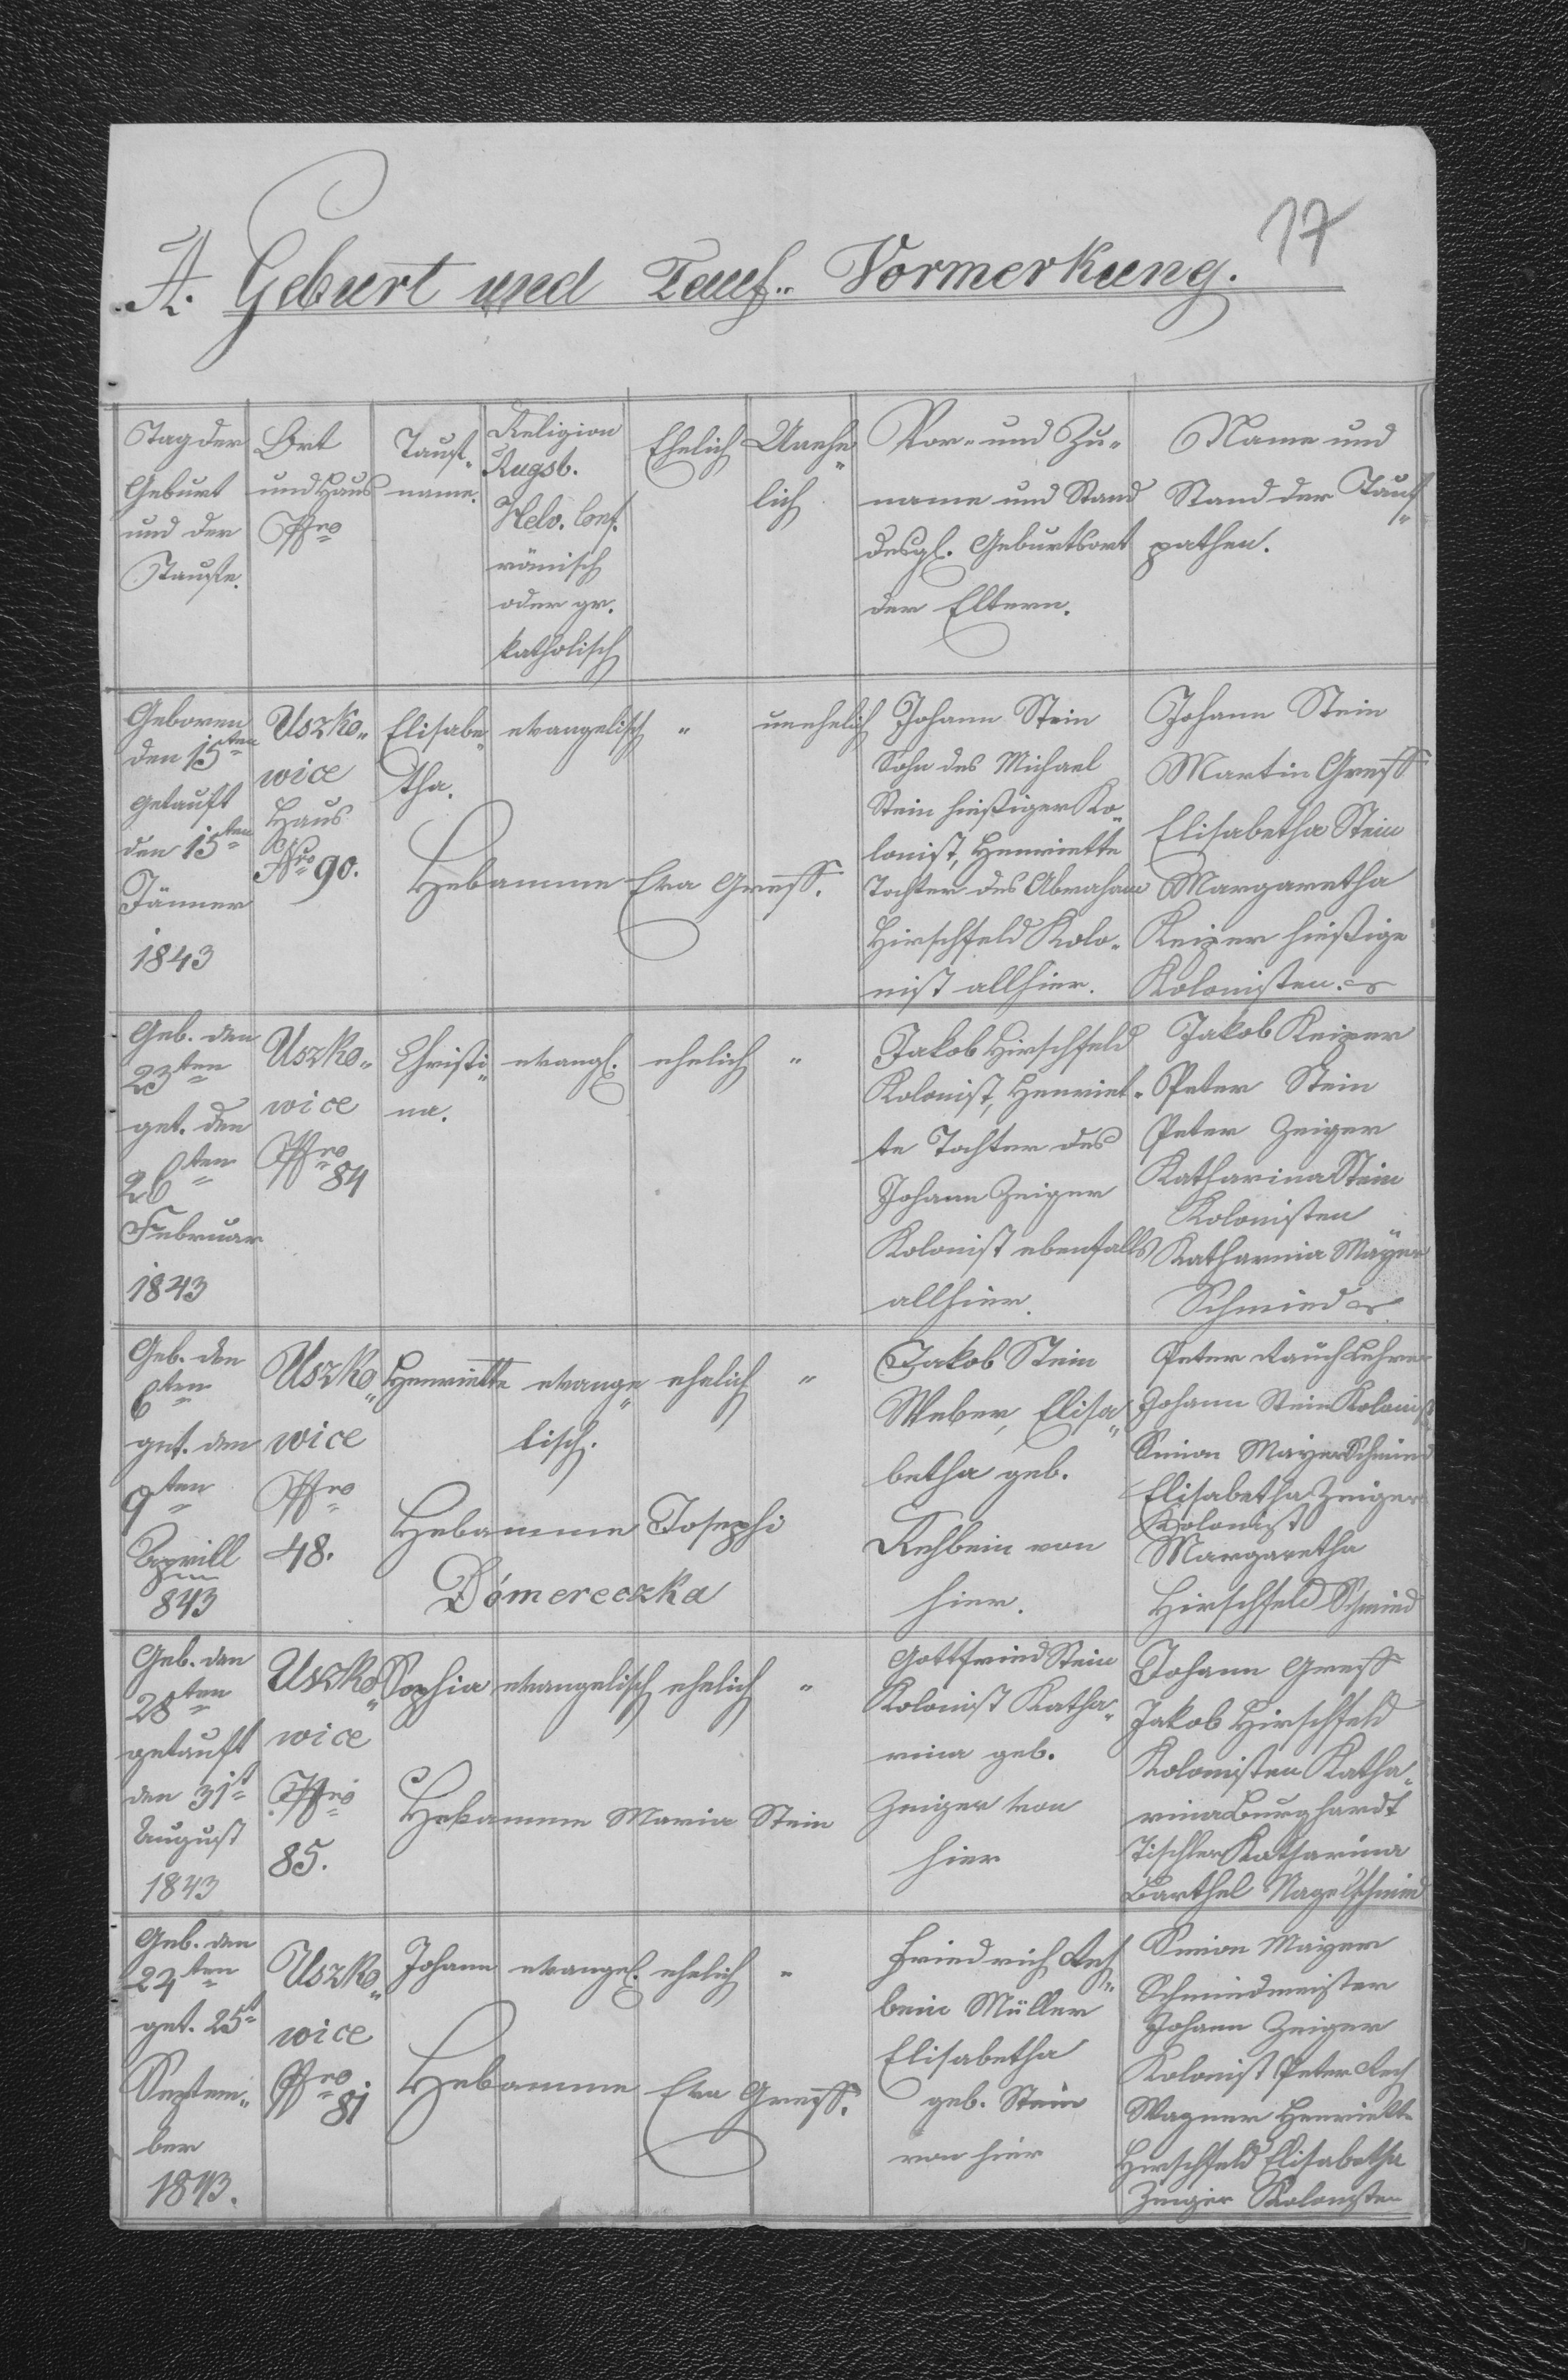 17
A. Geburt und Tauf„ Vormerkung.
Tag der
Geburt
und der
Taufe.
Ort
und Haus
Nro
Tauf„
name.
Religion
Augsb.
Helv. Conf.
römisch
oder gr.
katholisch
Ehelich
Unehe„
lich
Vor- und Zu„
name und Stand
desgl. Geburtsort
der Eltern.
Name und
Stand der Tauf„
pathen.
Geboren
den 15ten
getauft
den 15ten
Jänner
1843
Uszko„
wice
Haus
Nro 90.
Elisabe„
tha.
evangelisch
„
unehelich
Hebamme Eva Greß.
Johann Stein
Sohn des Michael
Stein hießiger Ko„
lonist, Henriette
Tochter des Abraham
Hirschfeld Kolo„
nist allhier.
Johann Stein
Martin Greß
Elisabetha Stein
Margaretha
Keiper hießige
Kolonisten.
Geb. den
23ten
get. den
26ten
Februar
1843
Uszko„
wice
Nro
84
Christi„
na.
evangl.
ehelich
„
Jakob Hirschfeld
Kolonist, Henriet„
te Tochter des
Johann Zeiger
Kolonist ebenfalls
allhier.
Jakob Keiper
Peter Stein
Peter Zeiger
Katharina Stein
Kolonisten
Katharina Mayer
Schmied
Geb. den
6ten
get. den
9ten
Aprill
843
Uszko„
wice
Nro
48.
Henriette
evange„
lisch.
ehelich
„
Hebamme Josephi
Dómereczka
Jakob Stein
Weber, Elisa„
betha geb.
Rehbein von
hier.
Peter Rauch Lehrer
Johann Stein Kolonist
Simon Mayer Schmied
Elisabetha Zeiger
Kolonist
Margaretha
Hirschfeld Schmied
Geb. den
28ten
getauft
den 31t
August
1843
Uszko„
wice
Nro
85.
Sophia
evangelisch
ehelich
„
Hebamme Maria Stein
Gottfried Stein
Kolonist Katha„
rina geb.
Zeiger von
hier
Johann Greß
Jakob Hirschfeld
Kolonisten Katha„
rina Burghardt
Tischler Katharina
Barthel Nagelschmied
Geb. den
24ten
get. 25t
Septem„
ber
1843.
Uszko„
wice
Nro
81
Johann
evangel.
ehelich
„
Hebamme Eva Greß.
Friedrich Reh„
bein Müller
Elisabetha
geb. Stein
von hier
Simon Mayer
Schmiedmeister
Johann Zeiger
Kolonist Peter Rech
Wagner Henriette
Hirschfeld Elisabetha
Zeiger Kolonisten